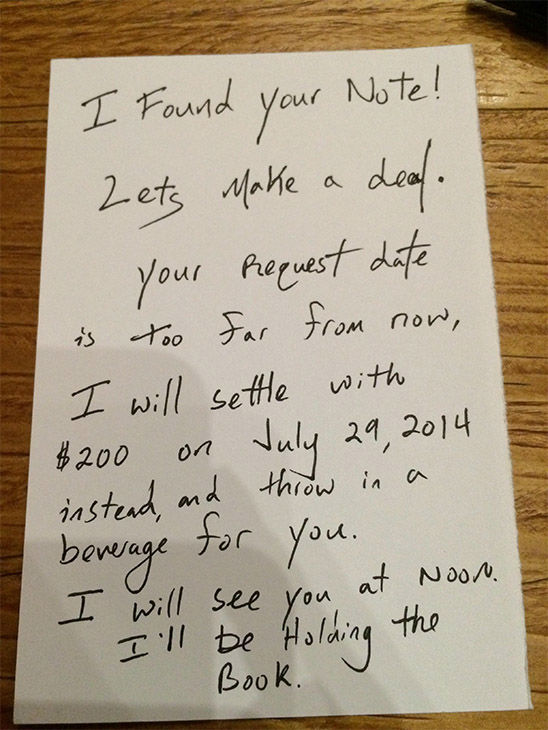 I Found your Note!
Lets Make a deal.
your Request date
is too far from now,
I will settle with
$200 on July 29, 2014
instead, and throw in a
beverage for you.
I will see you at Noon.
I'll be Holding the
Book.